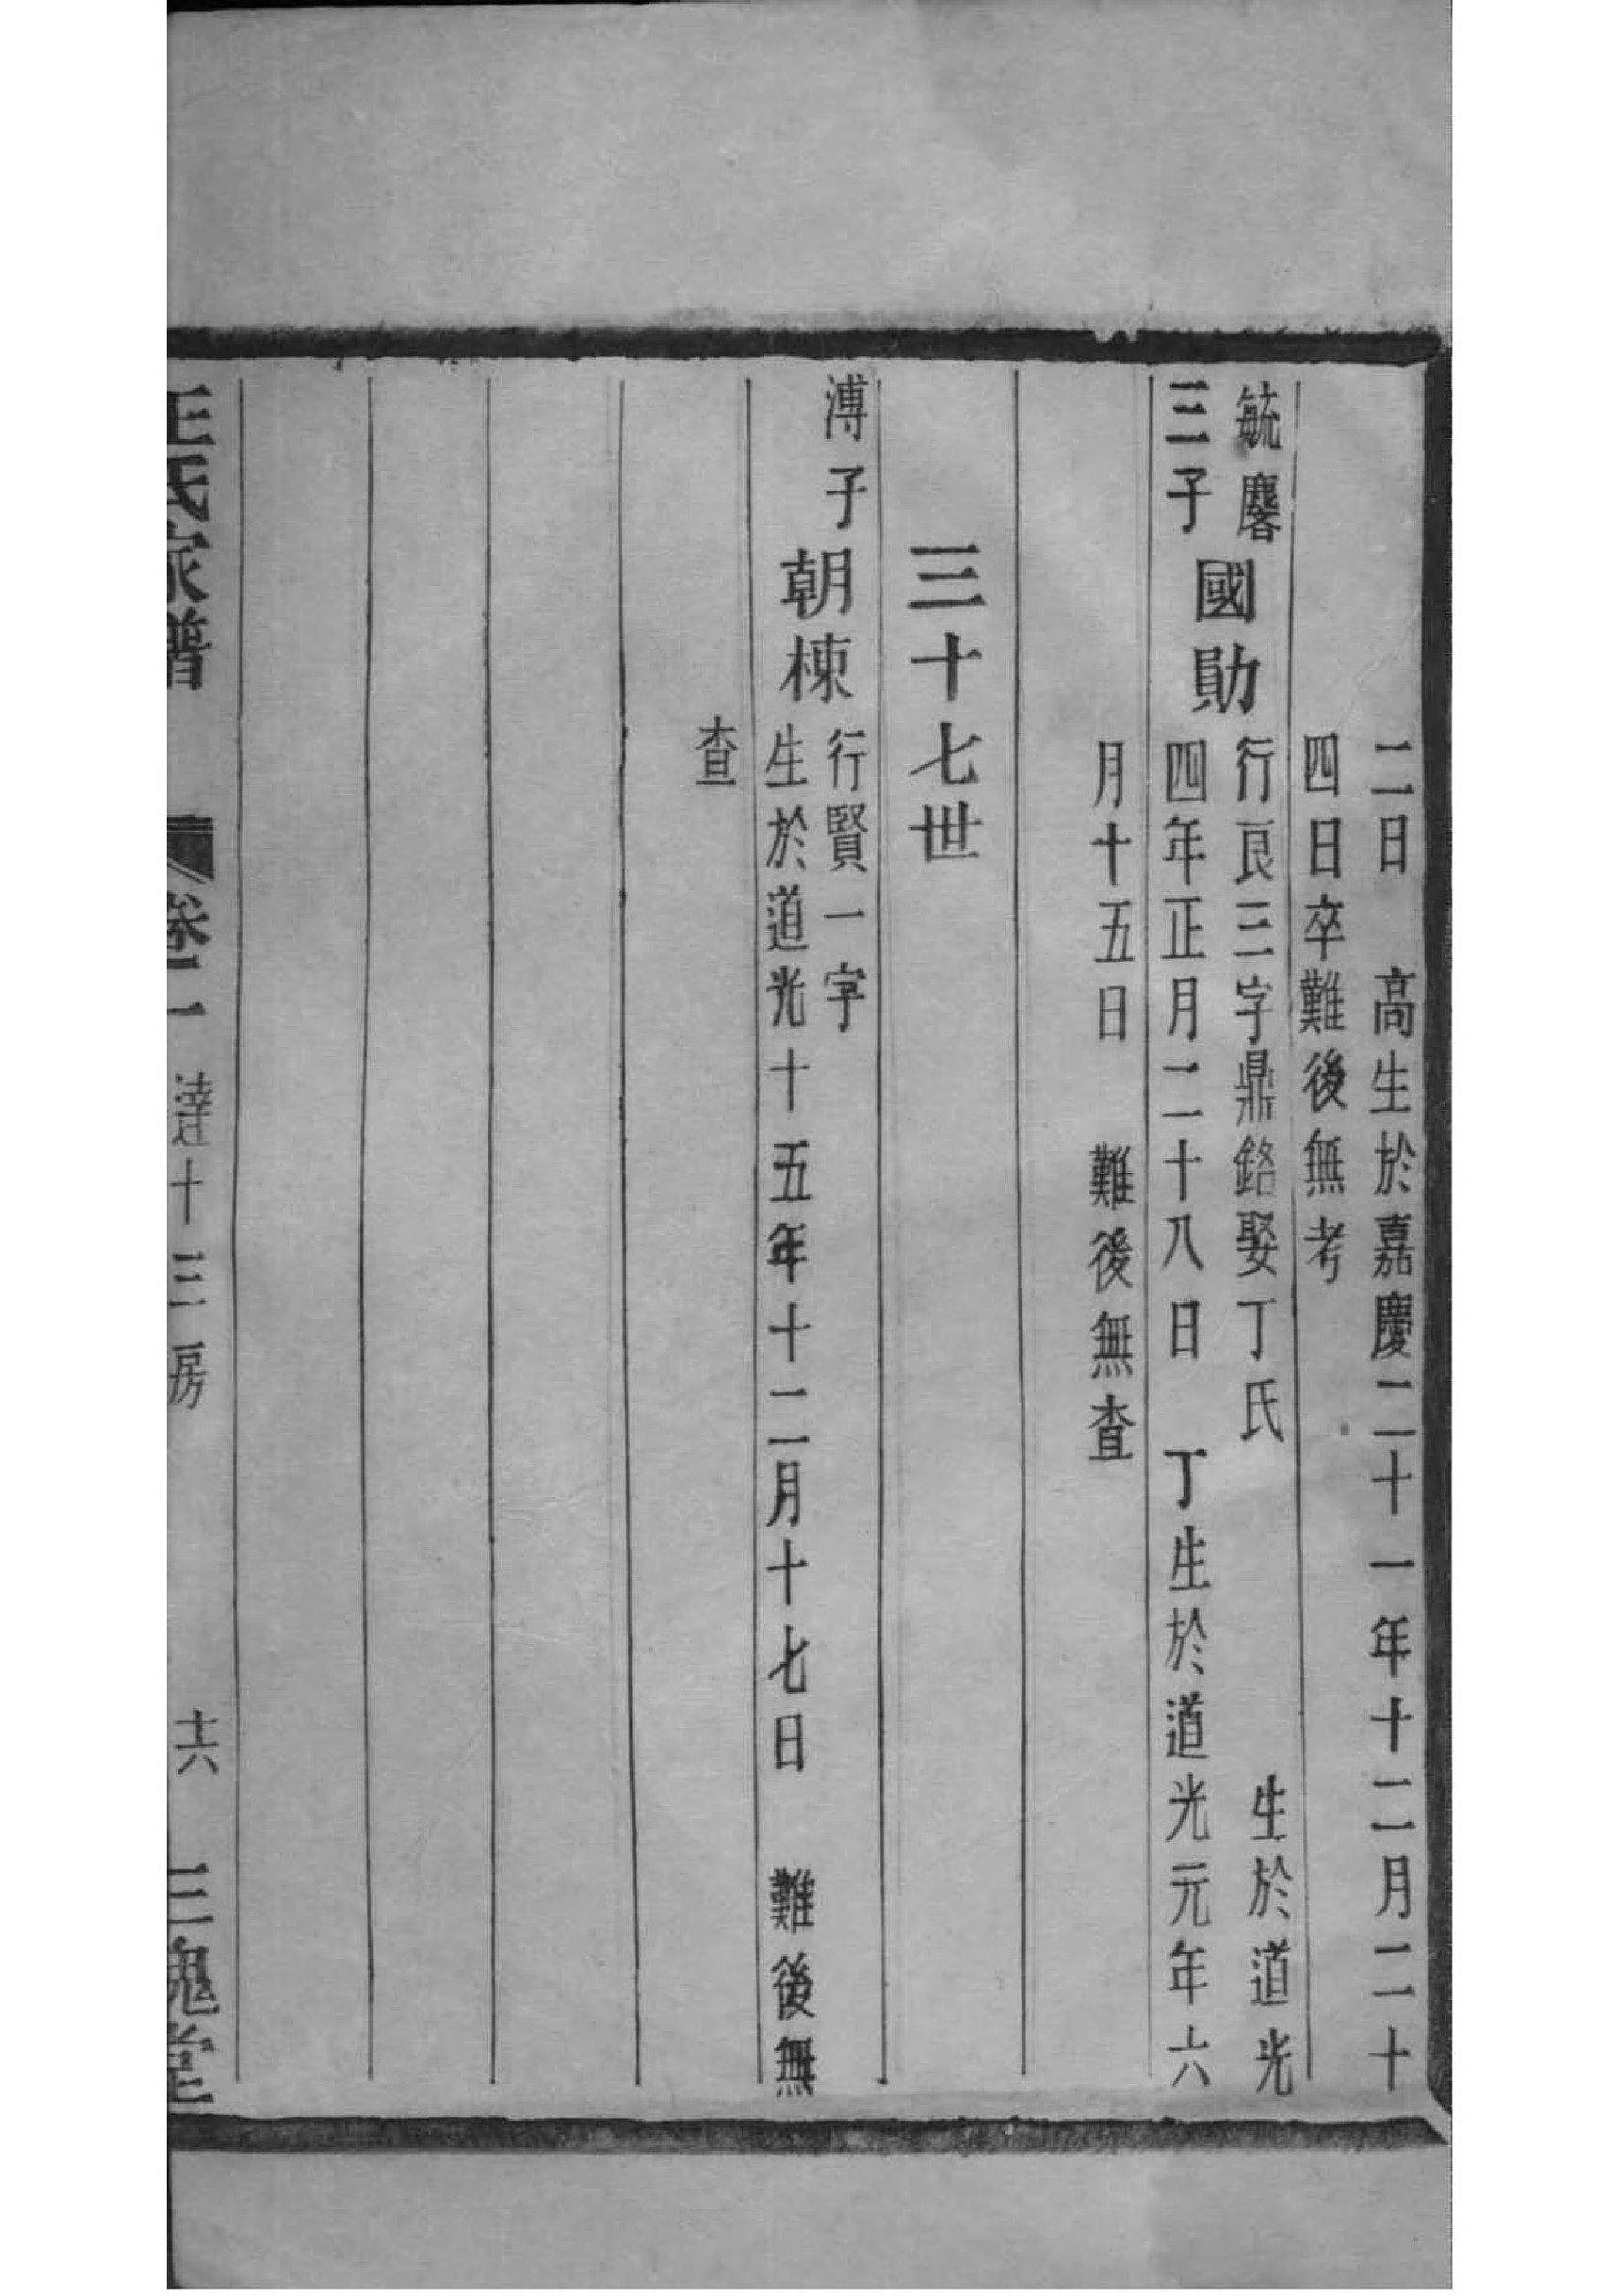 二日　高生於嘉慶二十一年十二月二十
四日卒難後無考
毓麐
三子
國勛
行良三字鼎銘娶丁氏　生於道光
四年正月二十八日　丁生於道光元年六
月十五日　難後無查
三十七世
溥子
朝棟
行賢一字
生於道光十五年十二月十七日　難後無
查
王氏家譜　卷二　達十三房　十六　三槐堂